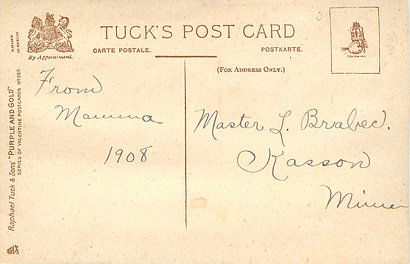 TUCK'S POST CARD
CARTE POSTALE.
POSTKARTE.
By Appointment.
(FOR ADDRESS ONLY.)
From
Mamma
1908
Master L. Brabec.
Kasson
Minn
Raphael Tuck & Sons' "PURPLE AND GOLD"
SERIES OF VALENTINE POSTCARDS